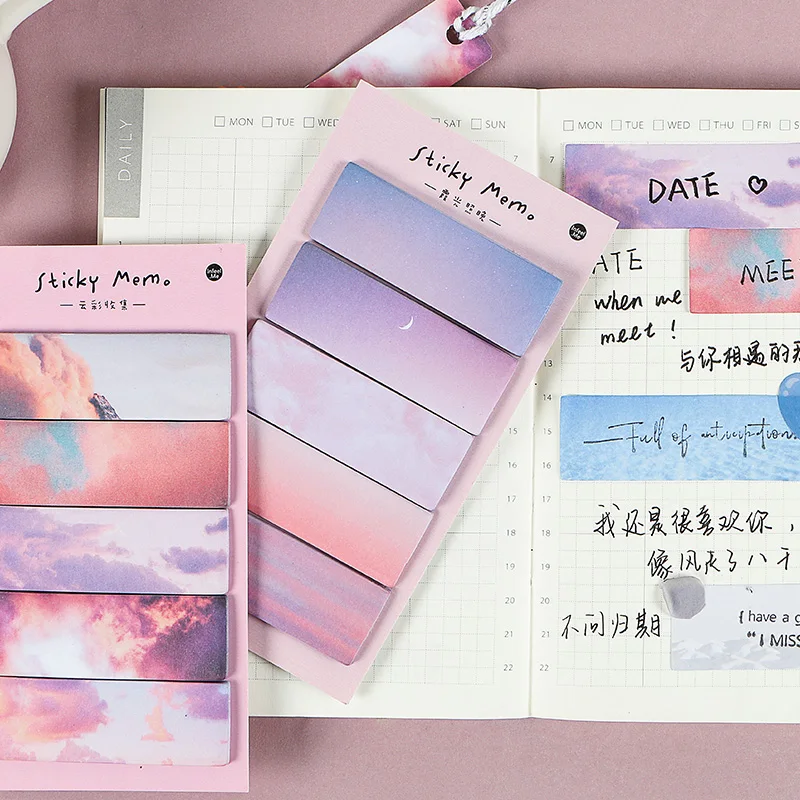 DAILY
MON TUE WED SAT SUN
7
Sticky Memo
霞光照晚
Infeel Me
Sticky Memo
云彩收集
Infeel Me
15
16
17
18
19
20
21
22
MON TUE WED THU FRI S
7
DATE ♡
MEE
ATE
when we
meet!
与你相遇的
13
14
15
16
17
18
19
20
21
22
—Full of anticipation
我还是很喜欢你，
像风走了八千
不问归期
I have a g
“I MISS